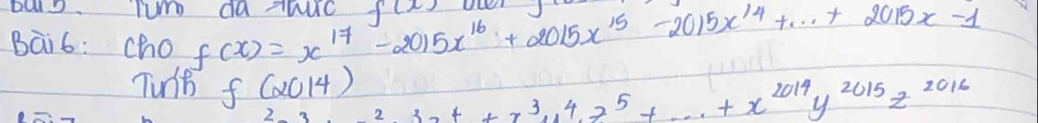 Bài 5. Tìm đa thức f(x)
Bài 6: Cho f(x) = x¹⁷ - 2015x¹⁶ + 2015x¹⁵ - 2015x¹⁴ + ... + 2015x - 1
Tính f(2014)
+ x³y⁴z⁵ + ... + x²⁰¹⁴y²⁰¹⁵z²⁰¹⁶